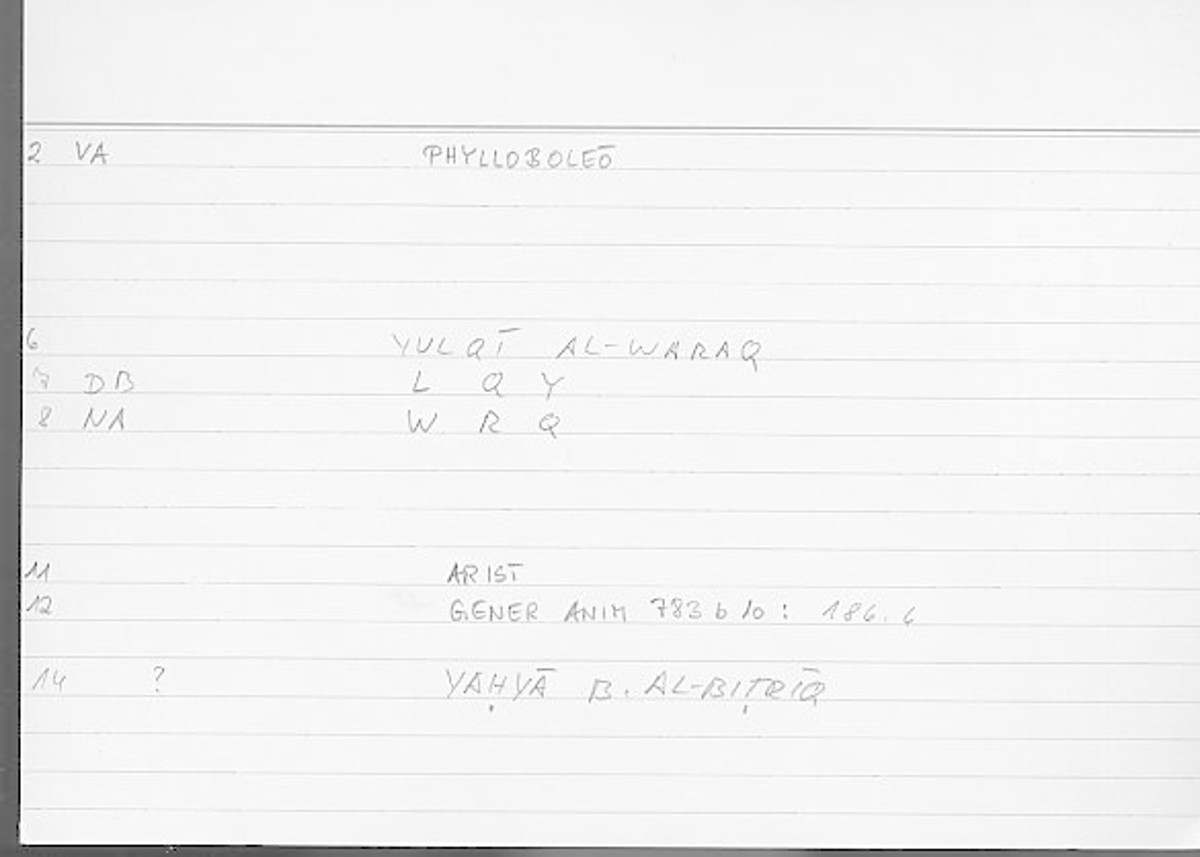 2 VA PHYLLOBOLEŌ
6 YULQĪ AL-WARAQ
7 DB L Q Y
8 NA W R Q
11 ARIST
12 GENER ANIM 783 b 10 : 186.6
14 ? YAḤYĀ B. AL-BIṬRĪQ